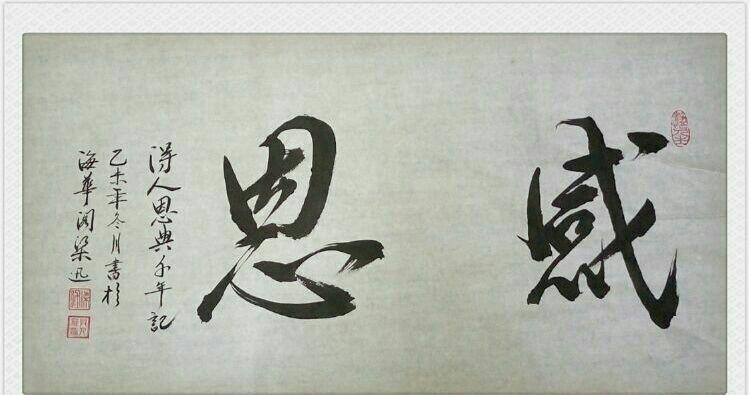 感恩
得人恩典千年記
乙未年冬月書於
海華閣梁迅